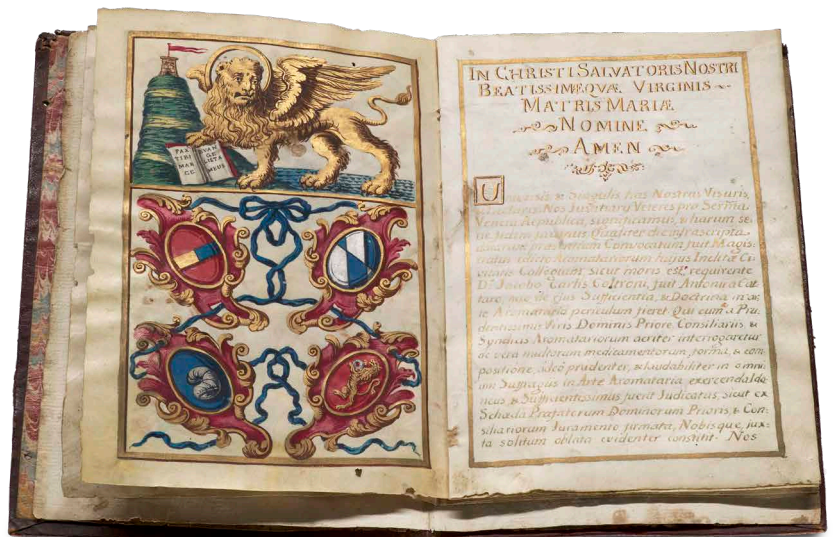 PAX
TIBI
MAR
CE
EVAN
GE
LISTA
MEUS
IN CHRISTI SALVATORIS NOSTRI
BEATISSIMEQVÆ VIRGINIS
MATRIS MARIÆ
NOMINE
AMEN
& Singulis has Nostras Visuris,
Nos Justitiarij Veteres pro Serma.
Veneta Republica, significamus, & harum se-
Qualiter de infrascripta
Convocatum fuit Magis:
Aromatariorum hujus Inclitæ Ci-
vitatis Collegium sicut moris est, requirente
Dº. Jacobo Carlis Coltroni, fuit Antonius Cat-
taro, de ejus Sufficientia, & Doctrina in ar-
te Aromataria periculum fieret. Qui cum a Pru-
dentissimis Viris Dominis Priore Consiliarijs, &
Syndicis Aromatariorum acriter interrogaretur
de vera multorum medicamentorum forma, & com-
positione, adeò prudenter, & laudabiliter in omni-
um Suffragijs in Arte Aromataria exercenda Ido-
neus, & Sufficientissimus fuerit Judicatus, sicut ex
Scheda Præfatorum Dominorum Prioris, & Con-
siliariorum Juramento firmata, Nobisque jux-
ta solitum oblata evidenter constitit. Nos